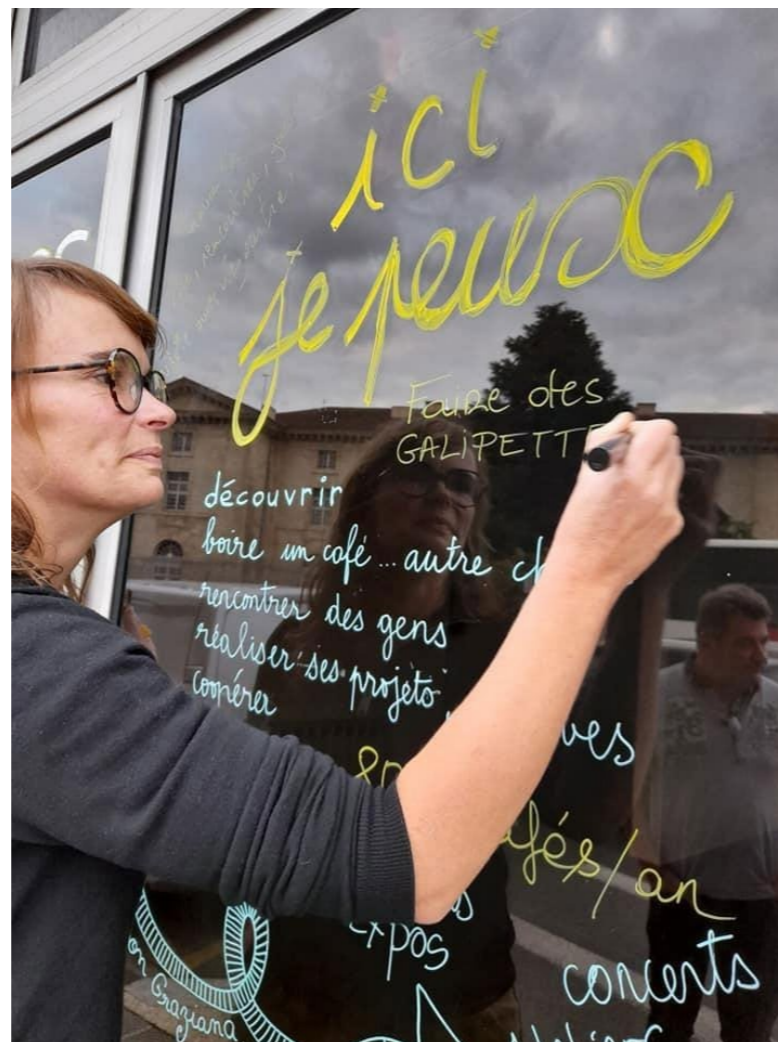 ici
je peux
Faire des
GALIPETTE
découvrir
boire un café ... autre ch
rencontrer des gens
réaliser ses projets
coopérer
ves
afés/an
expos
concerts
on Graziana